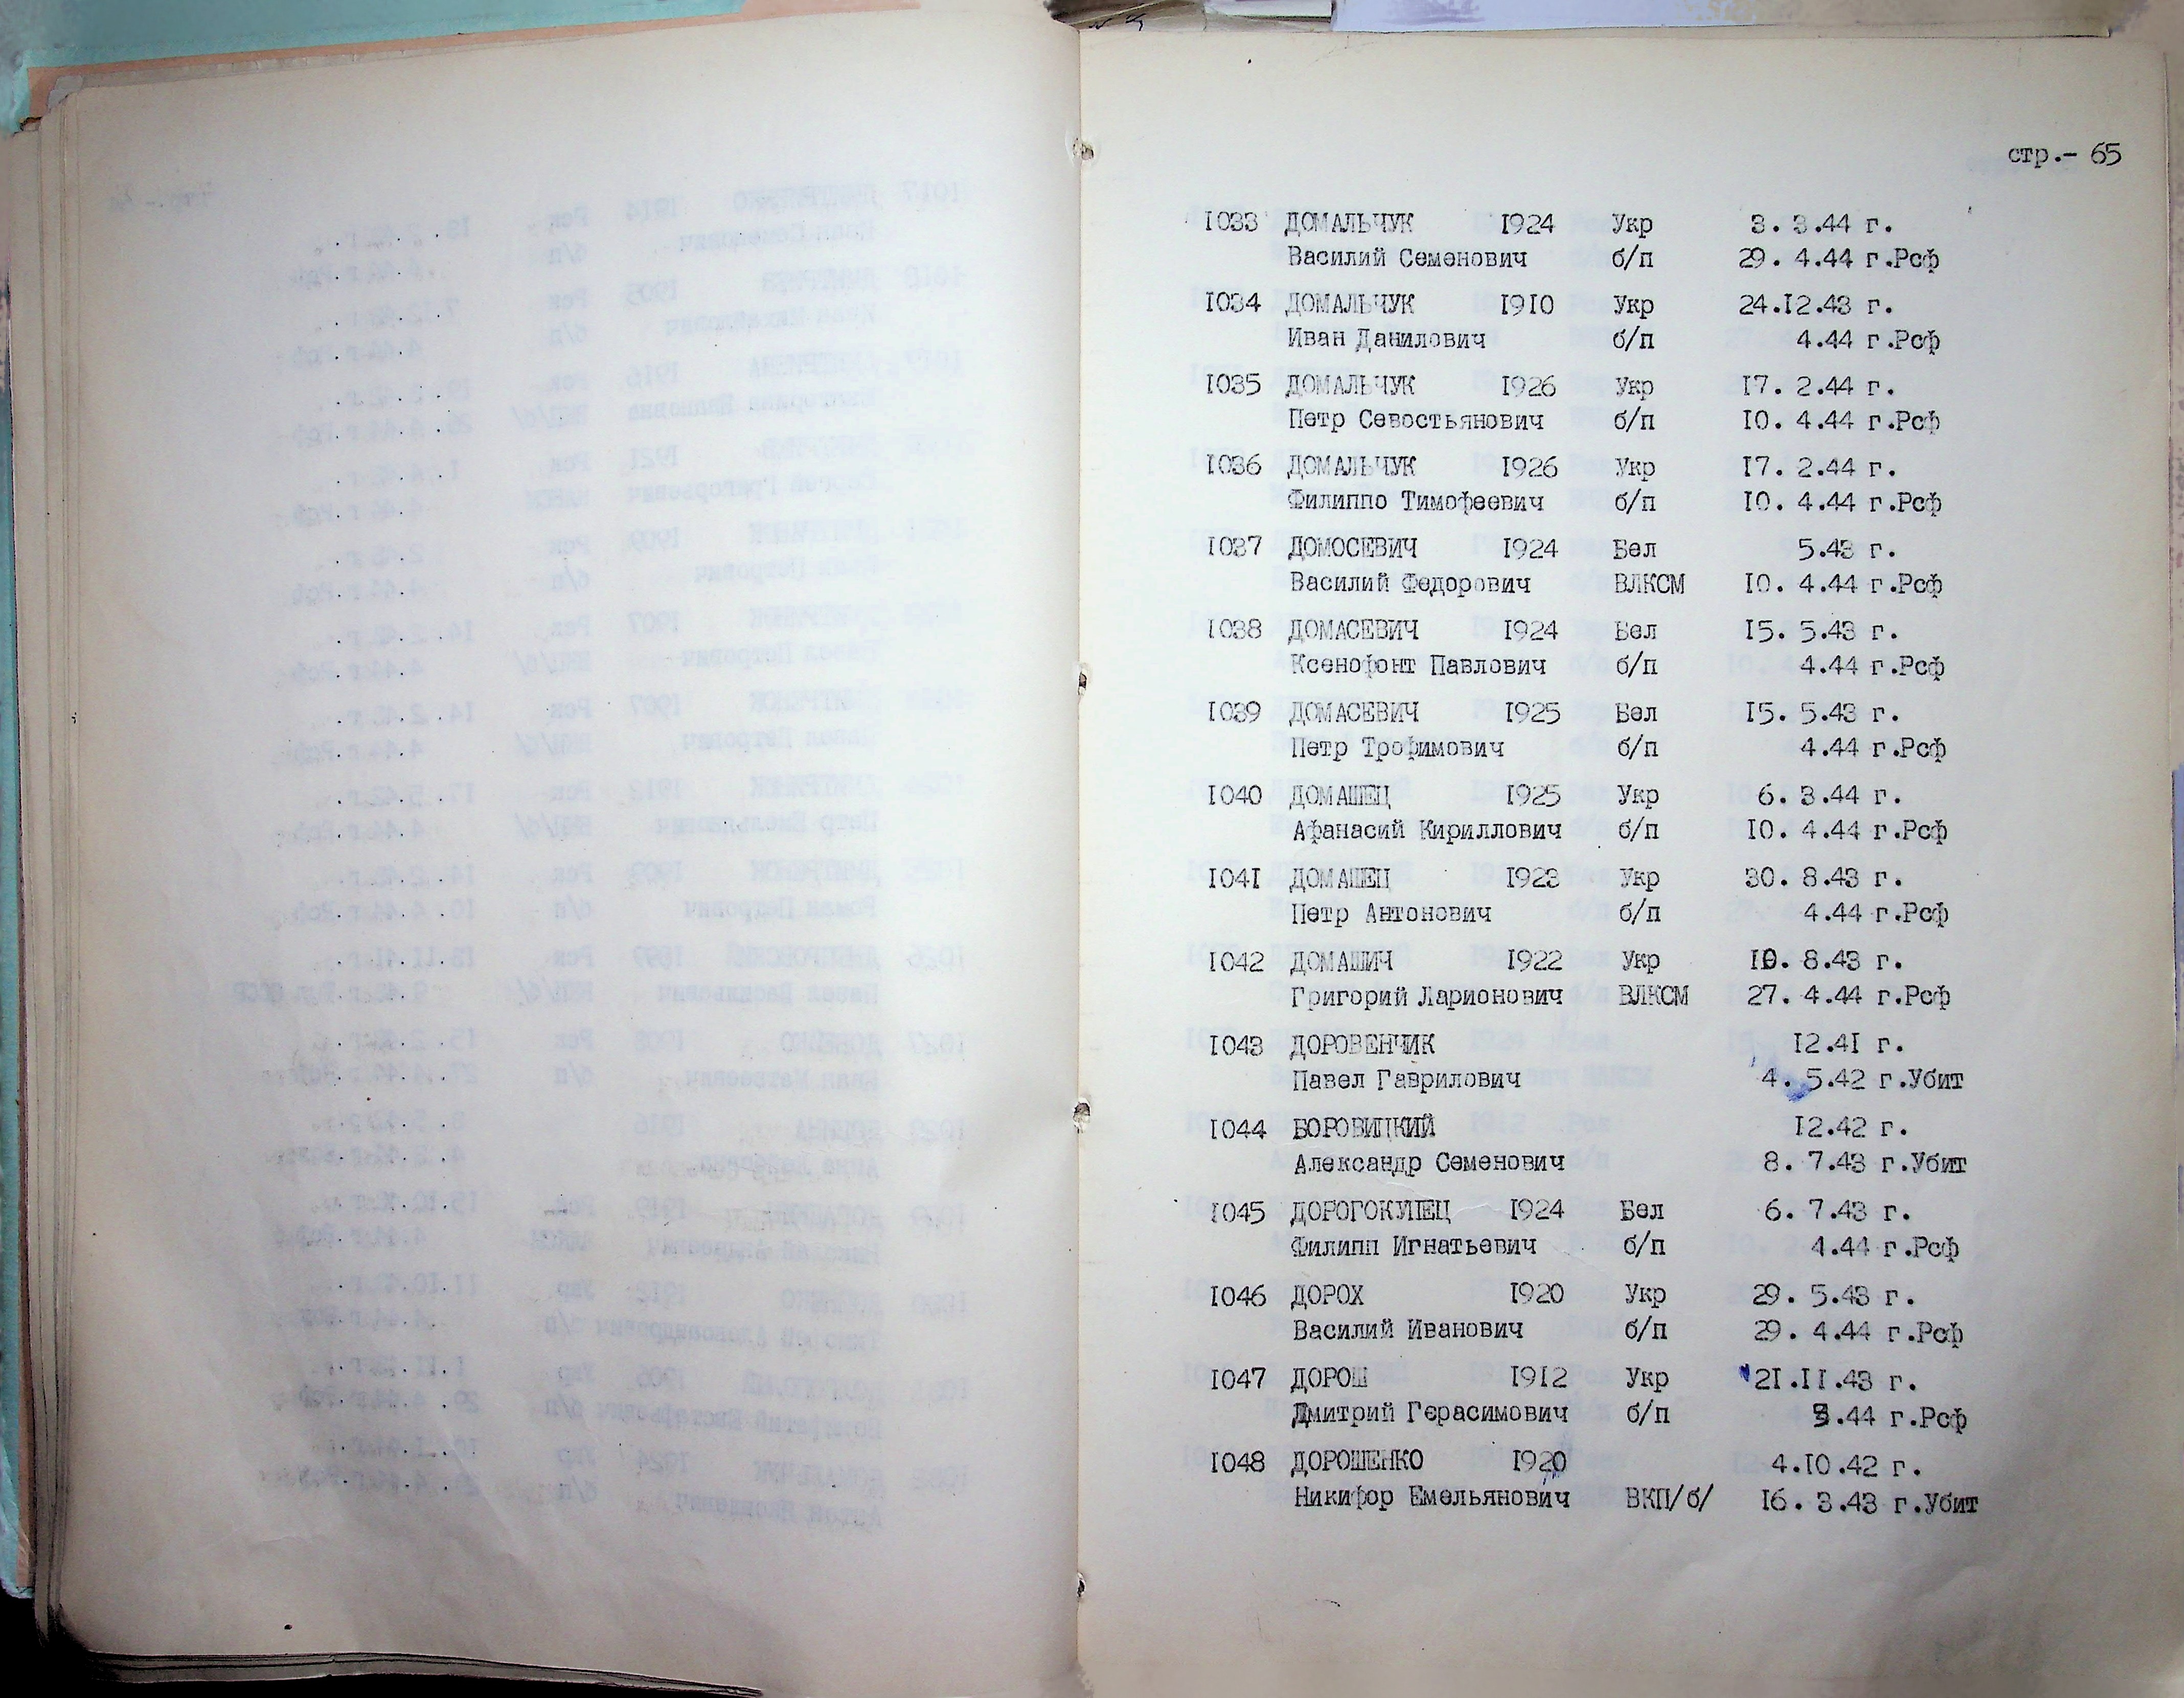 стр.- 65
1033 ДОМАЛЬЧУК 1924 Укр 3. 3.44 г.
Василий Семенович б/п 29. 4.44 г.Рсф
1034 ДОМАЛЬЧУК 1910 Укр 24.12.43 г.
Иван Данилович б/п 4.44 г.Рсф
1035 ДОМАЛЬЧУК 1926 Укр 17. 2.44 г.
Петр Севостьянович б/п 10. 4.44 г.Рсф
1036 ДОМАЛЬЧУК 1926 Укр 17. 2.44 г.
Филиппо Тимофеевич б/п 10. 4.44 г.Рсф
1037 ДОМОСЕВИЧ 1924 Бел 5.43 г.
Василий Федорович ВЛКСМ 10. 4.44 г.Рсф
1038 ДОМАСЕВИЧ 1924 Бел 15. 5.43 г.
Ксенофонт Павлович б/п 4.44 г.Рсф
1039 ДОМАСЕВИЧ 1925 Бел 15. 5.43 г.
Петр Трофимович б/п 4.44 г.Рсф
1040 ДОМАШЕЦ 1925 Укр 6. 3.44 г.
Афанасий Кириллович б/п 10. 4.44 г.Рсф
1041 ДОМАШЕЦ 1923 Укр 30. 8.43 г.
Петр Антонович б/п 4.44 г.Рсф
1042 ДОМАШИЧ 1922 Укр 10. 8.43 г.
Григорий Ларионович ВЛКСМ 27. 4.44 г.Рсф
1043 ДОРОВЕНЧИК 12.41 г.
Павел Гаврилович 4. 5.42 г.Убит
1044 БОРОВИЦКИЙ 12.42 г.
Александр Семенович 8. 7.43 г.Убит
1045 ДОРОГОКУПЕЦ 1924 Бел 6. 7.43 г.
Филипп Игнатьевич б/п 4.44 г.Рсф
1046 ДОРОХ 1920 Укр 29. 5.43 г.
Василий Иванович б/п 29. 4.44 г.Рсф
1047 ДОРОШ 1912 Укр 21.11.43 г.
Дмитрий Герасимович б/п 3.44 г.Рсф
1048 ДОРОШЕНКО 1920 4.10.42 г.
Никифор Емельянович ВКП/б/ 16. 3.43 г.Убит